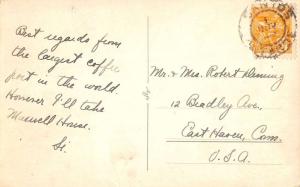 Best regards from
the largest coffee
port in the world.
However I'll take
Maxwell House.
Si.
Mr. & Mrs. Robert Fleming
12 Bradley Ave.,
East Haven, Conn.
U.S.A.